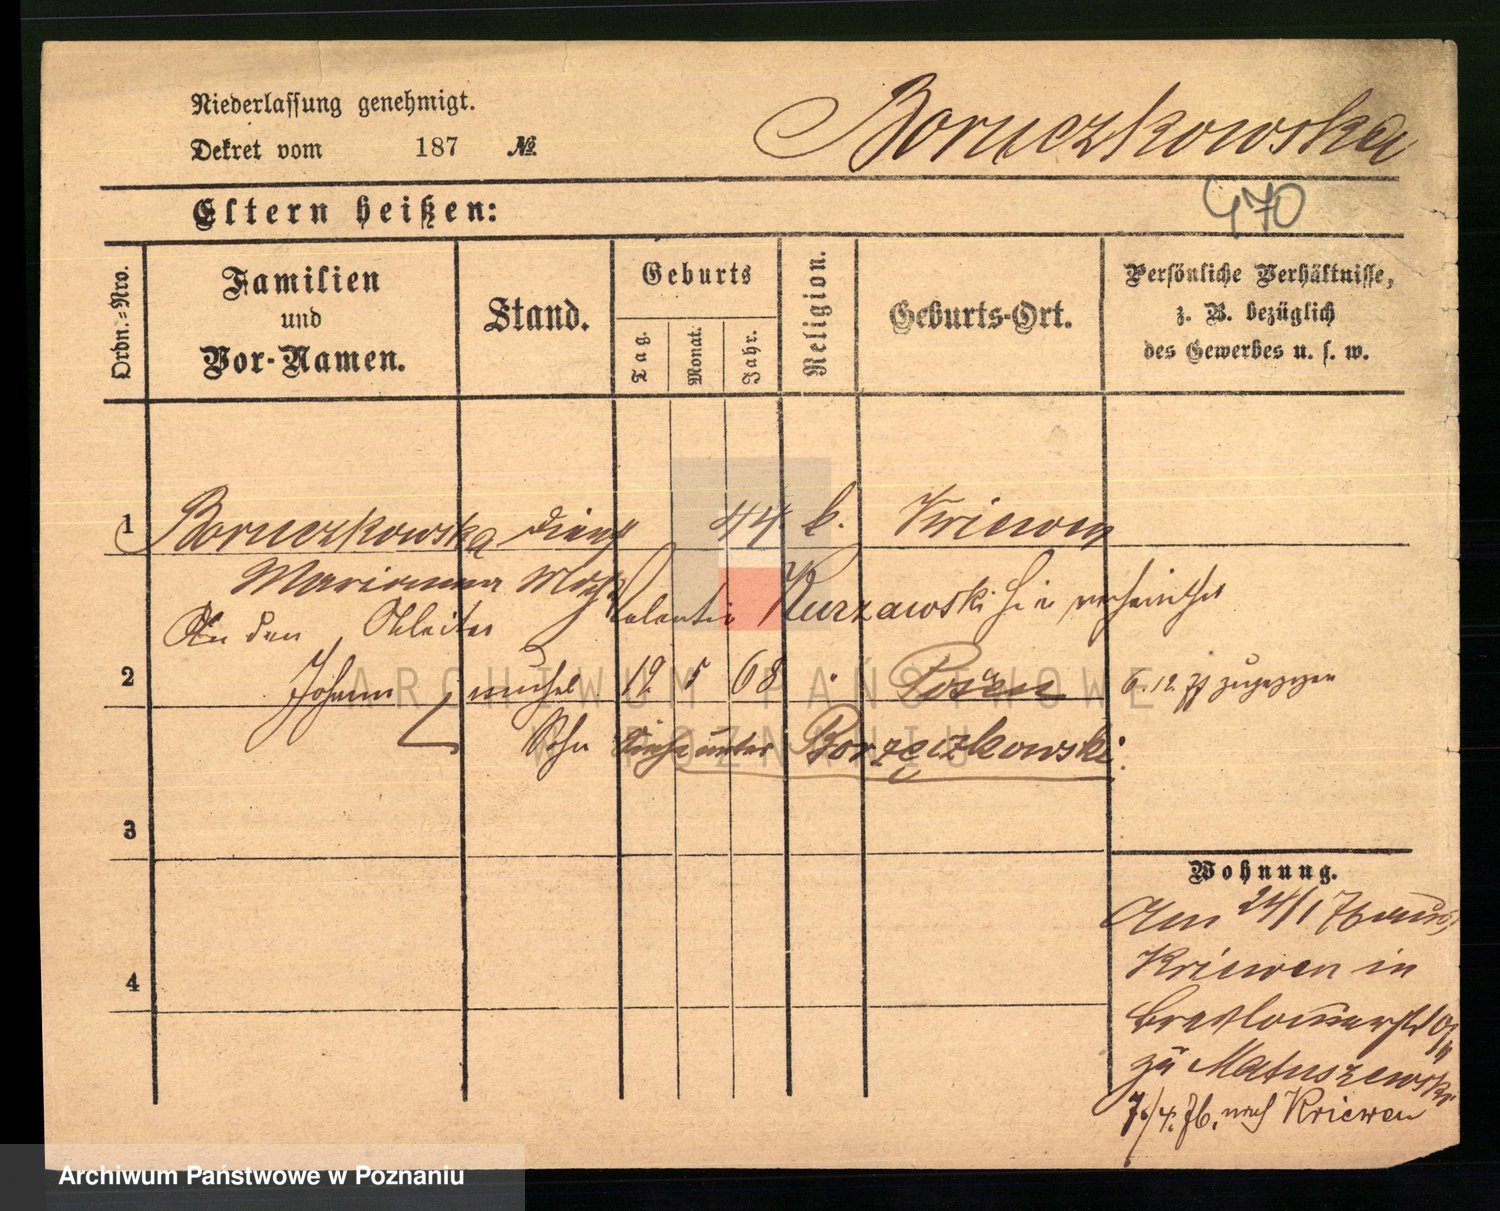 Niederlassung genehmigt.
Dekret vom 187 №
Boruczkowska
470
Eltern heißen:
Ordn.=Nro.
Familien
und
Vor-Namen.
Stand.
Geburts
Tag.
Monat.
Jahr.
Religion.
Geburts-Ort.
Persönliche Verhältnisse,
z. B. bezüglich
des Gewerbes u. s. w.
1 Boruczkowska Dienst 44 k. Kriewen
Marianna
An den Valentin Kurzawski
2 Johann 19 5 68 Posen 6.12. zugezogen
Sohn siehe unter Borzęczkowski
3
Wohnung.
Am 24/1 76 aus
Kriewen in
4
zu Matuszewski
7./4. 76. nach Kriewen
ARCHIWUM PAŃSTWOWE
W POZNANIU
Archiwum Państwowe w Poznaniu